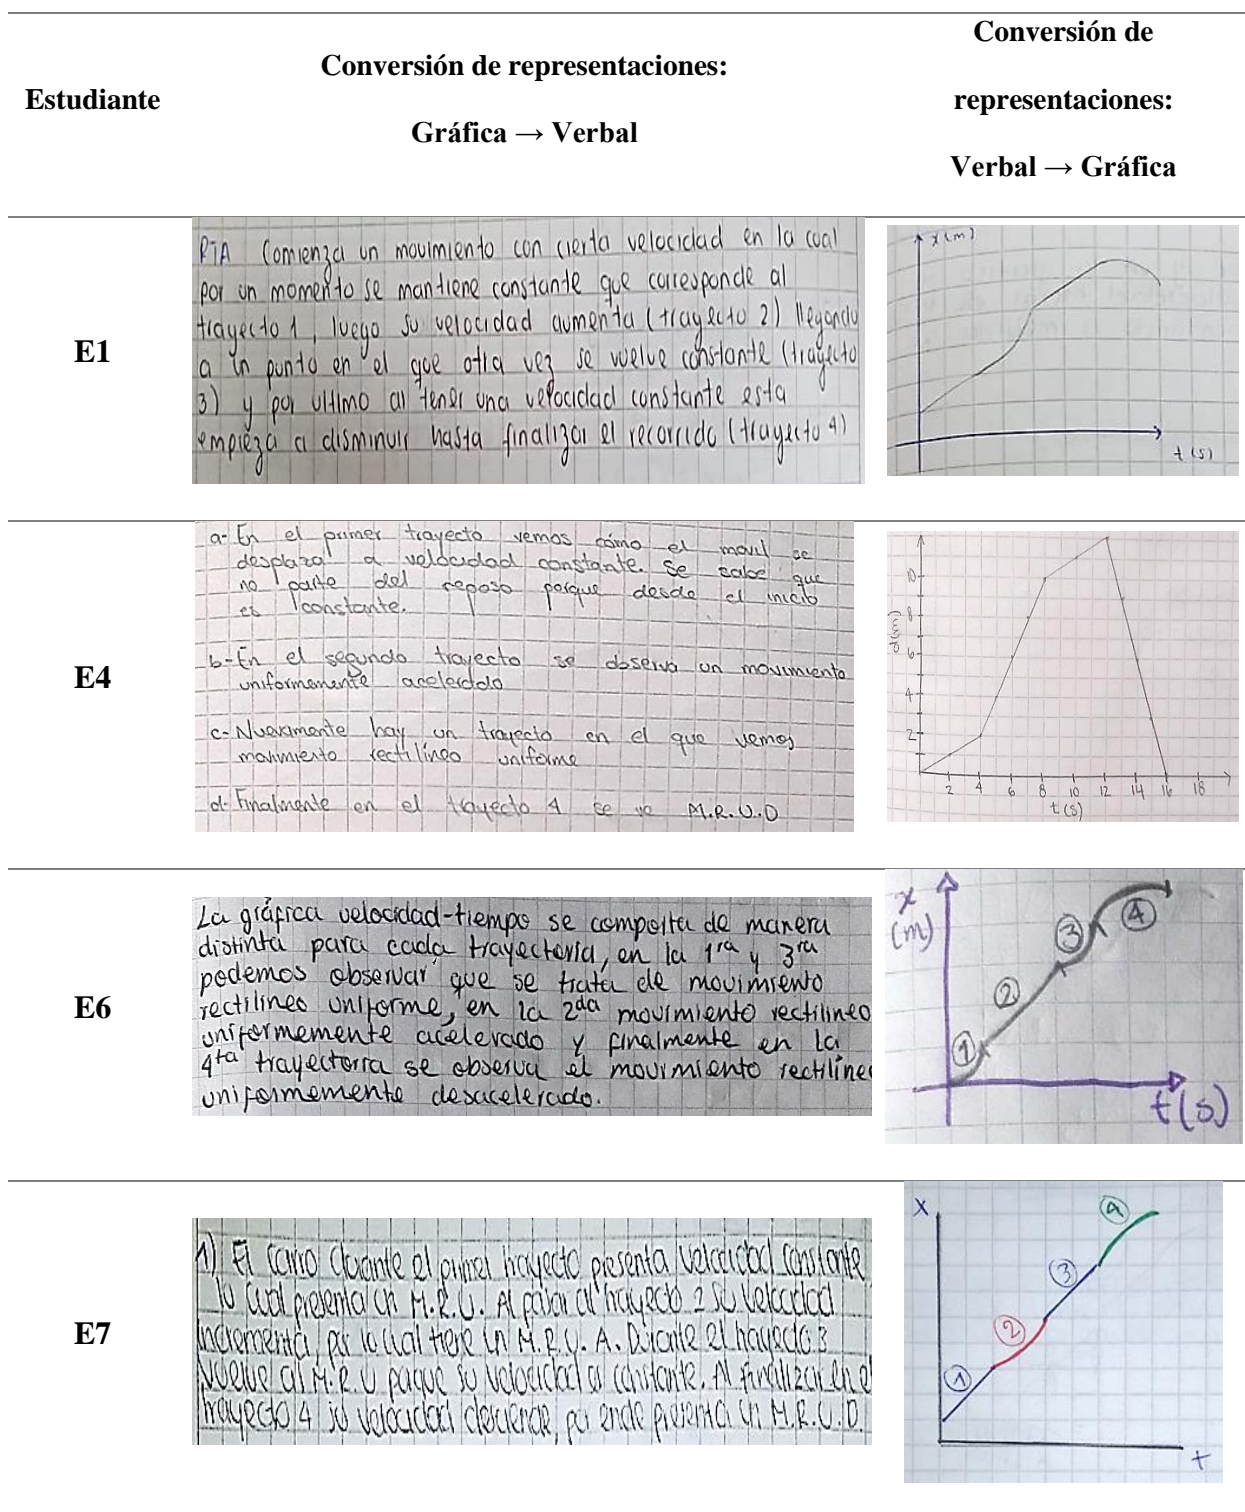 Estudiante
Conversión de representaciones:
Gráfica → Verbal
Conversión de
representaciones:
Verbal → Gráfica
E1
RTA Comienza un movimiento con cierta velocidad en la cual
por un momento se mantiene constante que corresponde al
trayecto 1, luego su velocidad aumenta (trayecto 2) llegando
a un punto en el que otra vez se vuelve constante (trayecto
3) y por ultimo al tener una velocidad constante esta
empieza a disminuir hasta finalizar el recorrido (trayecto 4)
x(m)
t(s)
E4
a- En el primer trayecto vemos cómo el movil se
desplaza a velocidad constante. Se sabe que
no parte del reposo porque desde el inicio
es constante.
b- En el segundo trayecto se observa un movimiento
uniformemente acelerado
c- Nuevamente hay un trayecto en el que vemos
movimiento rectilíneo uniforme
d- Finalmente en el trayecto 4 se ve M.R.U.D
10
8
6
4
2
2 4 6 8 10 12 14 16 18
t(s)
E6
La gráfica velocidad-tiempo se comporta de manera
distinta para cada trayectoria, en la 1ra y 3ra
podemos observar que se trata de movimiento
rectilineo uniforme, en la 2da movimiento rectilineo
uniformemente acelerado y finalmente en la
4ta trayectoria se observa el movimiento rectilíneo
uniformemente desacelerado.
x
(m)
1
2
3
4
t(s)
E7
1) El carro durante el primer trayecto presenta velocidad constante
lo cual presenta un M.R.U. Al pasar al trayecto 2 su velocidad
incrementa, por lo cual tiene un M.R.U.A. Durante el trayecto 3
vuelve al M.R.U porque su velocidad es constante. Al finalizar en el
trayecto 4 su velocidad desciende, por ende presenta un M.R.U.D.
x
1
2
3
4
t